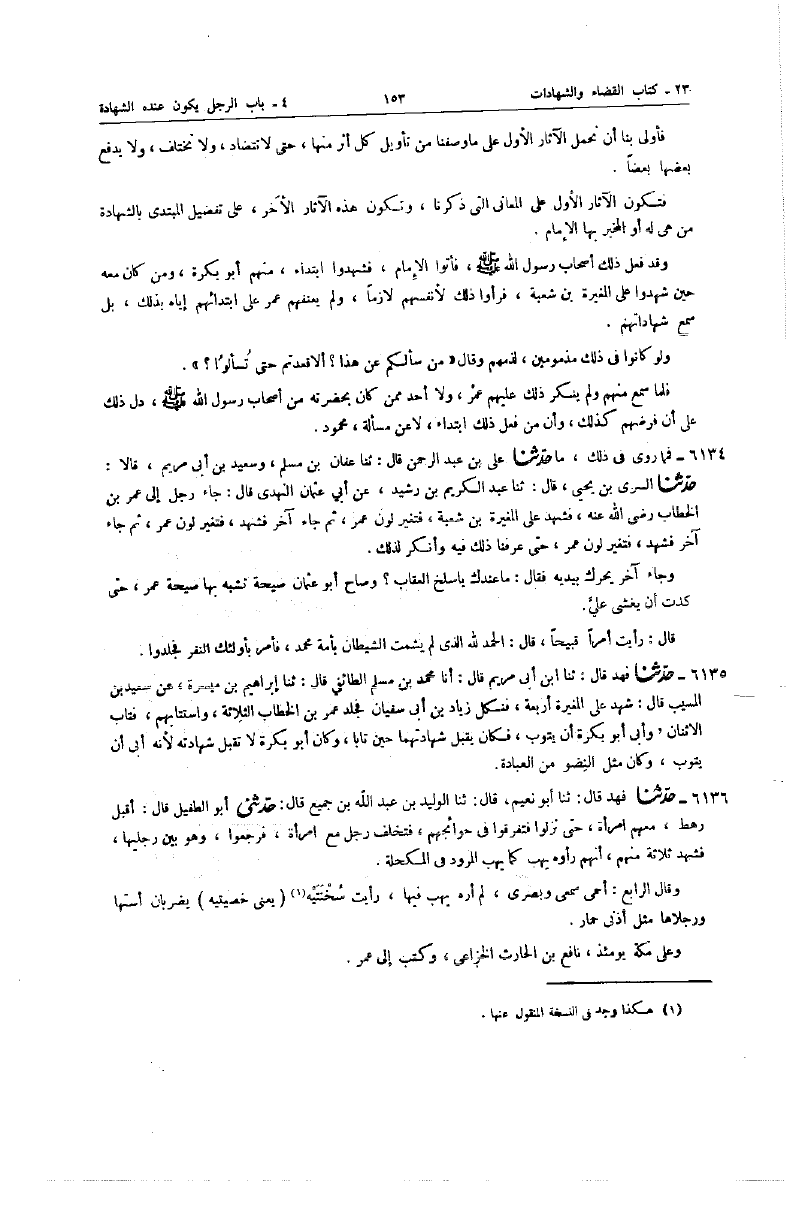 ٢٣ - كتاب القضاء والشهادات ١٥٣ ٤ - باب الرجل يكون عنده الشهادة
فأولى بنا أن نحمل الآثار الأول على ماوصفنا من تأويل كل أثر منها ، حتى لا تتضاد ، ولا تختلف ، ولا يدفع
بعضها بعضاً .
فتكون الآثار الأول على المعانى التى ذكرنا ، وتكون هذه الآثار الأخر ، على تفضيل المبتدى بالشهادة
من هى له أو المخبر بها الإمام .
وقد فعل ذلك أصحاب رسول الله ﷺ ، فأتوا الإمام ، فشهدوا ابتداء ، منهم أبو بكرة ، ومن كان معه
حين شهدوا على المغيرة بن شعبة ، فرأوا ذلك لأنفسهم لازماً ، ولم يعنفهم عمر على ابتدائهم إياه بذلك ، بل
سمع شهاداتهم .
ولو كانوا فى ذلك مذمومين ، لذمهم وقال « من سألكم عن هذا ؟ ألا قعدتم حتى تُسألوا ؟ » .
فلما سمع منهم ولم ينكر ذلك عليهم عمر ، ولا أحد ممن كان بحضرته من أصحاب رسول الله ﷺ ، دل ذلك
على أن فرضهم كذلك ، وأن من فعل ذلك ابتداء ، لا عن مسألة ، محمود .
٦١٣٤ - فما روى فى ذلك ، ما حدثنا على بن عبد الرحمن قال : ثنا عفان بن مسلم ، وسعيد بن أبى مريم ، قالا :
حدثنا السرى بن يحيى ، قال : ثنا عبد الكريم بن رشيد ، عن أبي عثمان النهدى قال : جاء رجل إلى عمر بن
الخطاب رضى الله عنه ، فشهد على المغيرة بن شعبة ، فتغير لون عمر ، ثم جاء آخر فشهد ، فتغير لون عمر ، ثم جاء
آخر فشهد ، فتغير لون عمر ، حتى عرفنا ذلك فيه وأنكر لذلك .
وجاء آخر يحرك بيديه فقال : ماعندك ياسلخ العقاب ؟ وصاح أبو عثمان صيحة تشبه بها صيحة عمر ، حتى
كدت أن يغشى علىَّ .
قال : رأيت أمراً قبيحاً ، قال : الحمد لله الذى لم يشمت الشيطان بأمة محمد ، فأمر بأولئك النفر فجلدوا .
٦١٣٥ - حدثنا فهد قال : ثنا ابن أبى مريم قال : أنا محمد بن مسلم الطائفى قال : ثنا إبراهيم بن ميسرة ، عن سعيد بن
المسيب قال : شهد على المغيرة أربعة ، فنكل زياد بن أبى سفيان فجلد عمر بن الخطاب الثلاثة ، واستتابهم ، فتاب
الاثنان ، وأبى أبو بكرة أن يتوب ، فكان يقبل شهادتهما حين تابا ، وكان أبو بكرة لا تقبل شهادته لأنه أبى أن
يتوب ، وكان مثل النِضو من العبادة .
٦١٣٦ - حدثنا فهد قال : ثنا أبو نعيم ، قال : ثنا الوليد بن عبد الله بن جميع قال : حدثنى أبو الطفيل قال : أقبل
رهط ، معهم امرأة ، حتى نزلوا فتفرقوا فى حوائجهم ، فتخلف رجل مع امرأة ، فرجعوا ، وهو بين رجليها ،
فشهد ثلاثة منهم ، أنهم رأوه يهب كما يهب المرود فى المكحلة .
وقال الرابع : أحمى سمعى وبصرى ، لم أره يهب فيها ، رأيت سُخْتَتَيْه (١) ( يعنى خصيتيه ) يضربان أستها
ورجلاها مثل أذنى حمار .
وعلى مكة يومئذ ، نافع بن الحارث الخزاعى ، وكتب إلى عمر .
(١) هكذا وجد فى النسخة المنقول عنها .